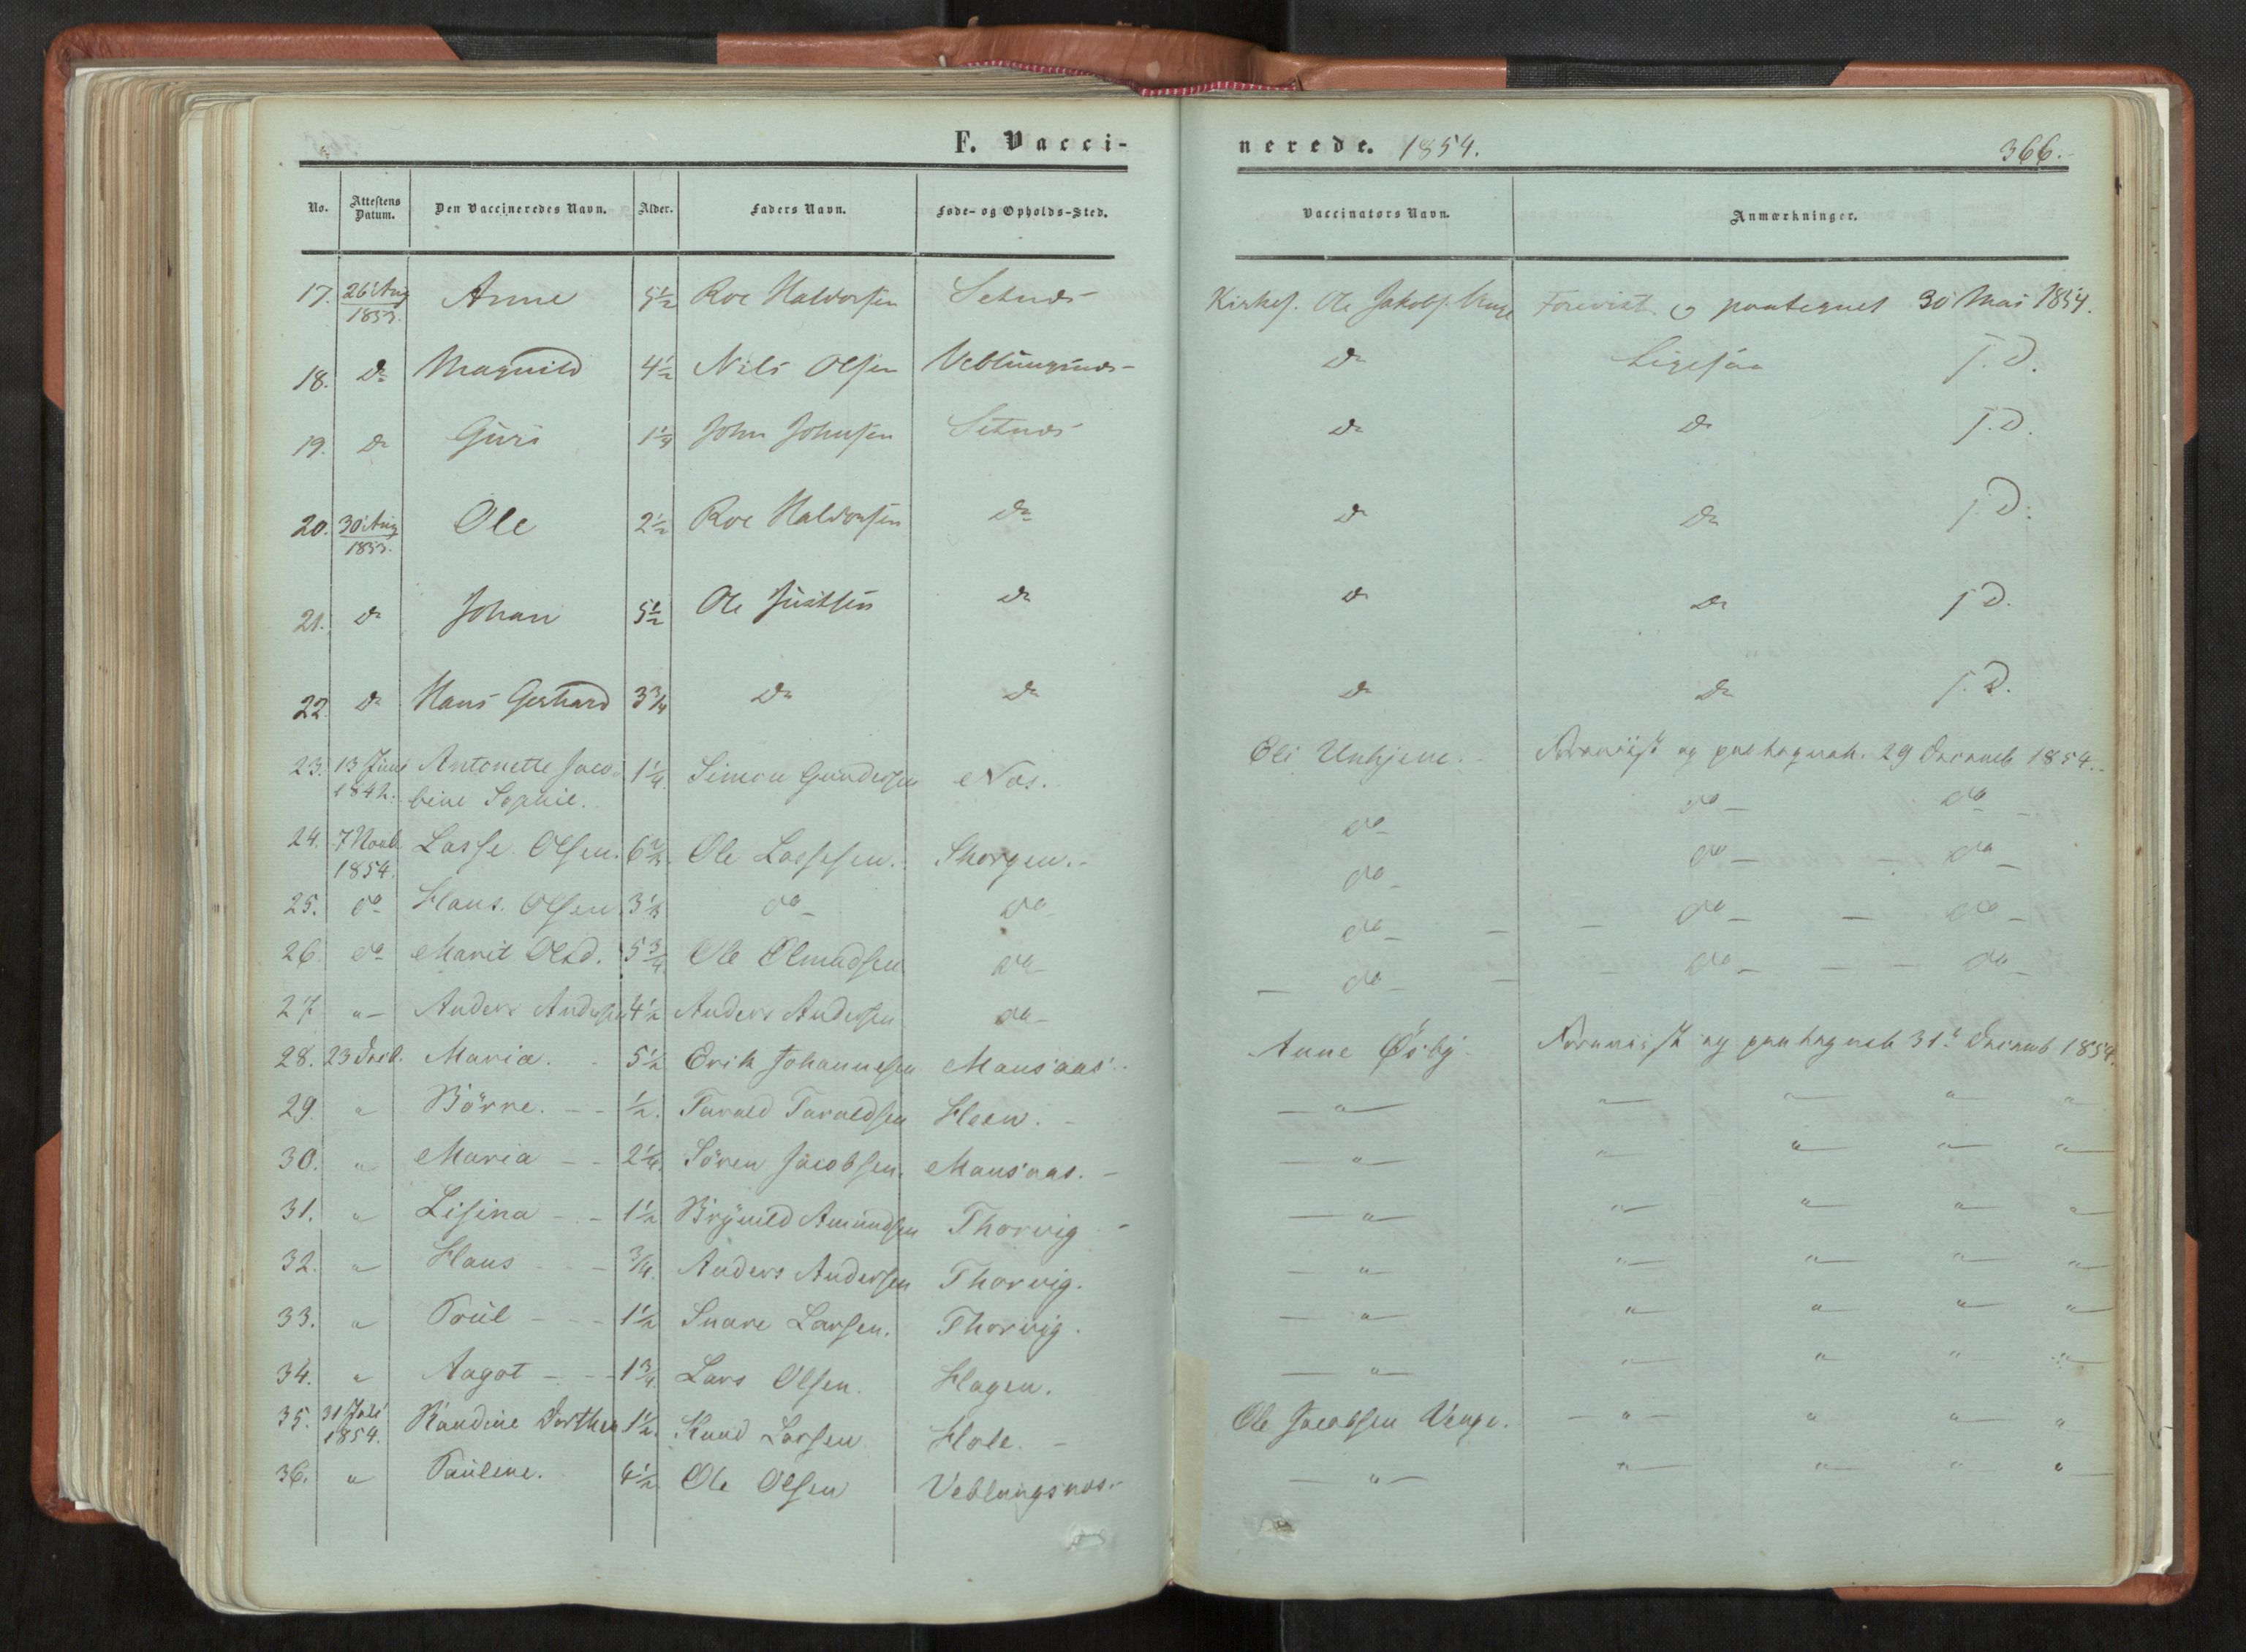 F. Vacci-
nerede. 1854. 366.
No. Attestens Datum. Den Vaccineredes Navn. Alder. Faders Navn. Føde- og Opholds-Sted. Vaccinators Navn. Anmærkninger.
17. 26 Aug 1853. Anne 5½ Roe Haldorsen Setnæs Kirkes. Ole Jakobs. Foreviist og paategnet 30 Mai 1854.
18. Do Magnild 4½ Nils Olsen Veblungsnæs Do Ligesaa J. D.
19. Do Guri 1¼ John Johnsen Setnæs Do Do J. D.
20. 30 Aug 1853. Ole 2½ Roe Haldorsen Do Do Do J. D.
21. Do Johan 5½ Ole Do Do Do J. D.
22. Do Hans Gerhard 3¾ Do Do Do Do J. D.
23. 13 Juni 1842. Antonette Jaco- 1¼ Simon Gundersen Næs. Eli Unhjem. Foreviist og paategnet. 29 Decemb 1854.
bine Sophie.
24. 7 Novb. 1854. Lasse Olsen. 6⅔ Ole Lassesen. Skorgen. do do do
25. do Hans. Olsen 3⅓ do do do do do
26. do Marit Olsd. 5¾ Ole do do do do
27. " Anders Andersen 4½ Anders Andersen do do do do
28. 23 Decb. Maria. 5½ Erik Johannesen Monsaas. Anne Øsby. Foreviist og paategnet 31te Decemb 1854.
29. " Börre. ½. Tarald Taraldsen Heen. " " " " "
30. " Maria 2¼. Sören Jacobsen. Monsaas. " " " " "
31. " Lisina 1½ Brynild Amundsen Thorvig " " " " "
32. " Hans ¾. Anders Andersen Thorvig. " " " " "
33. " Poul 1½ Snare Larsen. Thorvig. " " " " "
34. " Aagot 1¾. Lars Olsen. Hagen. " " " " "
35. 31 Juli 1854. Randine Dorthea 1½. Knud Larsen Hole. Ole Jacobsen Venge. " " " "
36. " Pauline. 4½ Ole Olsen Veblungsnæs. " " " " "